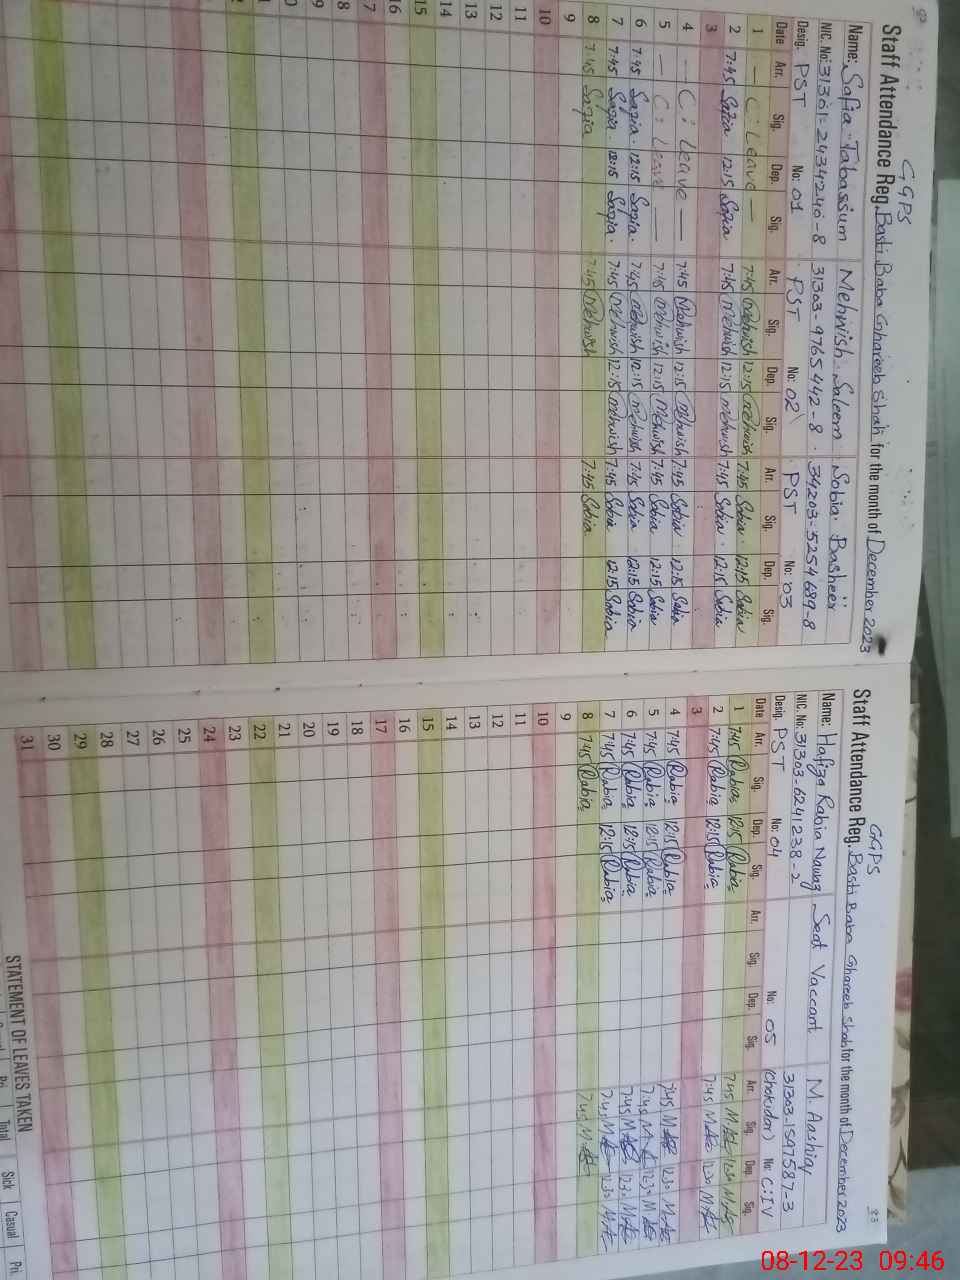 GGPS
Staff Attendance Reg. Basti Baba Ghareeb Shah for the month of December 2023
Name: Safia Tabassum Mehwish Saleem Sobia Basheer
NIC. No: 31301-2434240-8 31303-9765442-8 34203-5254689-8
Desig. PST No: 01 PST No: 02 PST No: 03
Date Arr. Sig. Dep. Sig. Arr. Sig. Dep. Sig. Arr. Sig. Dep. Sig.
1 — C: Leave — 7:45 Mehwish 12:15 Mehwish 7:45 Sobia 12:15 Sobia
2 7:45 Safia 12:15 Safia 7:45 Mehwish 12:15 Mehwish 7:45 Sobia 12:15 Sobia
3
4 — C: Leave — 7:45 Mehwish 12:15 Mehwish 7:45 Sobia 12:15 Sobia
5 — C: Leave — 7:45 Mehwish 12:15 Mehwish 7:45 Sobia 12:15 Sobia
6 7:45 Safia 12:15 Safia 7:45 Mehwish 12:15 Mehwish 7:45 Sobia 12:15 Sobia
7 7:45 Safia 12:15 Safia 7:45 Mehwish 12:15 Mehwish 7:45 Sobia 12:15 Sobia
8 7:45 Safia 7:45 Mehwish 7:45 Sobia
9
10
11
12
13
14
15
16
17
8
9
0
GGPS
83
Staff Attendance Reg. Basti Baba Ghareeb Shah for the month of December 2023
Name: Hafiza Rabia Nawaz Seat Vaccant M. Aashiq
NIC. No: 31303-6241238-2 31303-1597587-3
Desig. PST No: 04 No: 05 (Chokidar) No: C:IV
Date Arr. Sig. Dep. Sig. Arr. Sig. Dep. Sig. Arr. Sig. Dep. Sig.
1 7:45 Rabia 12:15 Rabia 7:45 12:30
2 7:45 Rabia 12:15 Rabia 7:45 12:30
3
4 7:45 Rabia 12:15 Rabia 7:45 12:30
5 7:45 Rabia 12:15 Rabia 7:45 12:30
6 7:45 Rabia 12:15 Rabia 7:45 12:30
7 7:45 Rabia 12:15 Rabia 7:45 12:30
8 7:45 Rabia 7:45
9
10
11
12
13
14
15
16
17
18
19
20
21
22
23
24
25
26
27
28
29
30
31
STATEMENT OF LEAVES TAKEN
Pri. Total Sick Casual Pri.
08-12-23 09:46